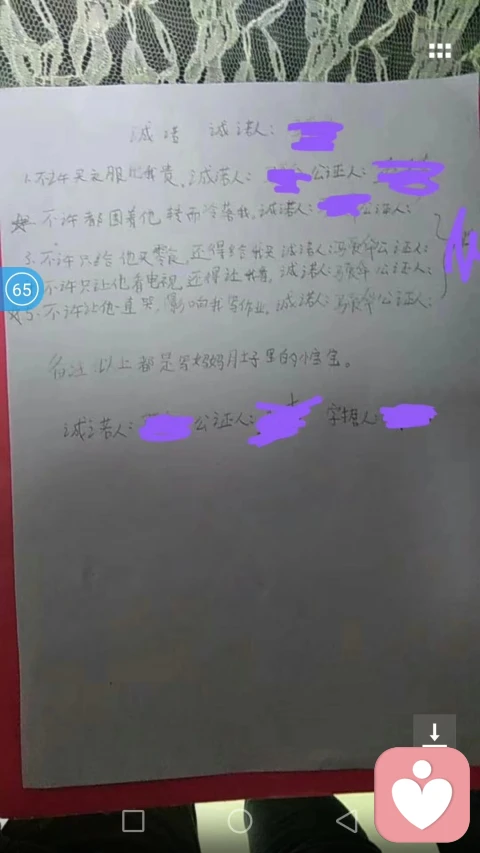 诚诺 诚诺人:
1.不许买衣服比我贵,诚诺人: 公证人:
不许都围着他转而冷落我,诚诺人: 公证人:
3.不许只给他买零食,还得给我买 诚诺人: 公证人:
65
不许只让他看电视,还得让我看,诚诺人: 公证人:
5.不许让他一直哭,影响我写作业,诚诺人: 公证人:
备注:以上都是 妈妈月子里的小宝宝。
诚诺人: 公证人: 字据人: